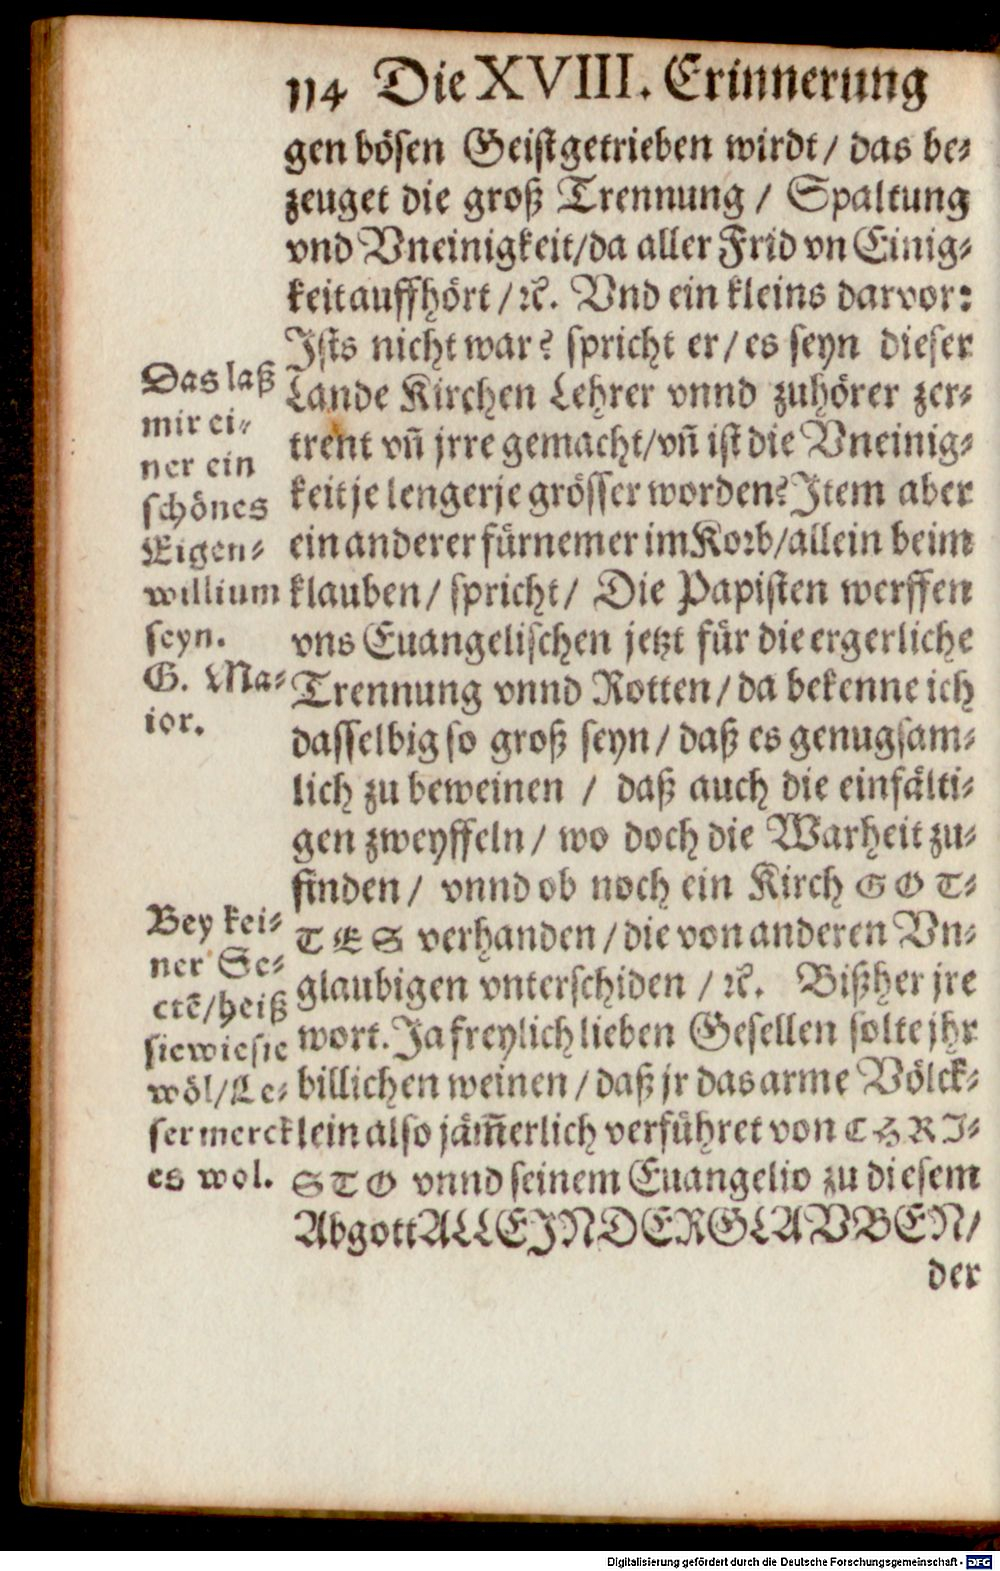 114 Die XVIII. Erinnerung
gen bösen Geist getrieben wirdt / das be⸗
zeuget die groß Trennung / Spaltung
vnd Vneinigkeit/da aller Frid vn Einig⸗
keit auffhört / ꝛc. Vnd ein kleins darvor:
Ists nicht war? spricht er / es seyn dieser
Lande Kirchen Lehrer vnnd zuhörer zer⸗
trent vn̄ jrre gemacht/vn̄ ist die Vneinig⸗
keit je lenger je grösser worden? Jtem aber
ein anderer fürnemer im Korb/allein beim
klauben / spricht / Die Papisten werffen
vns Euangelischen jetzt für die ergerliche
Trennung vnnd Rotten / da bekenne ich
dasselbig so groß seyn / daß es genugsam⸗
lich zu beweinen / daß auch die einfälti⸗
gen zweyffeln / wo doch die Warheit zu⸗
finden / vnnd ob noch ein Kirch GOT⸗
TES verhanden / die von anderen Vn⸗
glaubigen vnterschiden / ꝛc. Bißher jre
wort. Ja freylich lieben Gesellen solte jhr
billichen weinen / daß jr das arme Völck⸗
lein also jäm̄erlich verführet von CHRI⸗
STO vnnd seinem Euangelio zu diesem
Abgott ALLEIN DER GLAVBEN/
der
Das laß
mir ei⸗
ner ein
schönes
Eigen⸗
willium
seyn.
G. Ma⸗
ior.
Bey kei⸗
ner Se⸗
ctē/heiß
sie wie sie
wöl/Le⸗
ser merck
es wol.
Digitalisierung gefördert durch die Deutsche Forschungsgemeinschaft - DFG